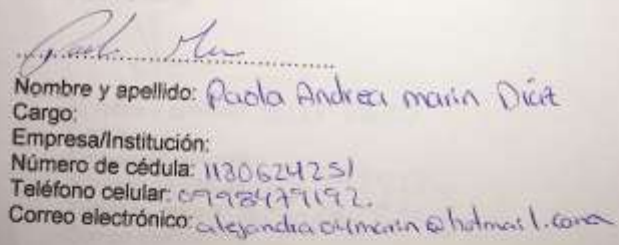 Nombre y apellido: Paola Andrea marin Diaz
Cargo:
Empresa/Institución:
Número de cédula: 1130624251
Teléfono celular: 0998479192.
Correo electrónico: alejandra04marin@hotmail.com